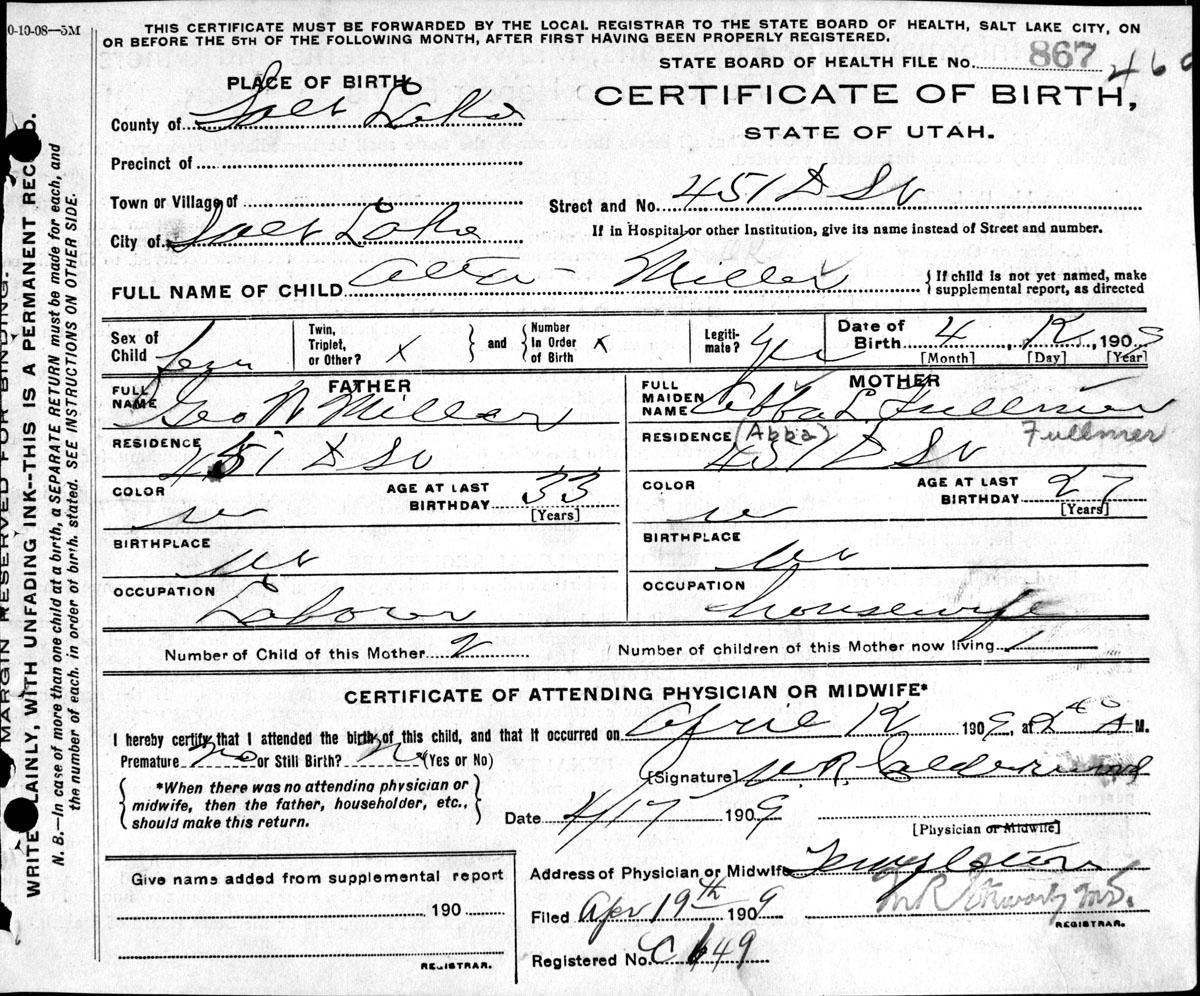 0-10-08—5M
THIS CERTIFICATE MUST BE FORWARDED BY THE LOCAL REGISTRAR TO THE STATE BOARD OF HEALTH, SALT LAKE CITY, ON
OR BEFORE THE 5TH OF THE FOLLOWING MONTH, AFTER FIRST HAVING BEEN PROPERLY REGISTERED.
STATE BOARD OF HEALTH FILE No. 867
PLACE OF BIRTH
CERTIFICATE OF BIRTH,
STATE OF UTAH.
County of Salt Lake
Precinct of
Town or Village of
Street and No. 451 D St
City of Salt Lake
If in Hospital or other Institution, give its name instead of Street and number.
FULL NAME OF CHILD Miller
{If child is not yet named, make supplemental report, as directed
Sex of Child Fem
Twin, Triplet, or Other? X } and { Number In Order of Birth X
Legiti-mate? yes
Date of Birth 4, 12, 190
[Month] [Day] [Year]
FATHER
FULL NAME Geo W Miller
RESIDENCE 451 D St
COLOR w
AGE AT LAST BIRTHDAY 33
[Years]
BIRTHPLACE Ut
OCCUPATION Laborer
MOTHER
FULL MAIDEN NAME Abba L Fullmer
RESIDENCE (Abba) Fullmer
451 D St
COLOR w
AGE AT LAST BIRTHDAY 27
[Years]
BIRTHPLACE Ut
OCCUPATION Housewife
Number of Child of this Mother 2
Number of children of this Mother now living 2
CERTIFICATE OF ATTENDING PHYSICIAN OR MIDWIFE*
I hereby certify that I attended the birth of this child, and that it occurred on April 12 1909, at 2 40 A M.
Premature no or Still Birth? No (Yes or No)
{ *When there was no attending physician or
midwife, then the father, householder, etc.,
should make this return. }
[Signature] Calderwood
Date 4/17 1909
[Physician or Midwife]
Address of Physician or Midwife Templeton
Give name added from supplemental report
190
REGISTRAR.
Filed Apr 19th 1909
M.D.
REGISTRAR.
Registered No. C 649
MARGIN RESERVED FOR BINDING.
WRITE PLAINLY, WITH UNFADING INK--THIS IS A PERMANENT RECORD.
N. B.—In case of more than one child at a birth, a SEPARATE RETURN must be made for each, and
the number of each, in order of birth, stated. SEE INSTRUCTIONS ON OTHER SIDE.